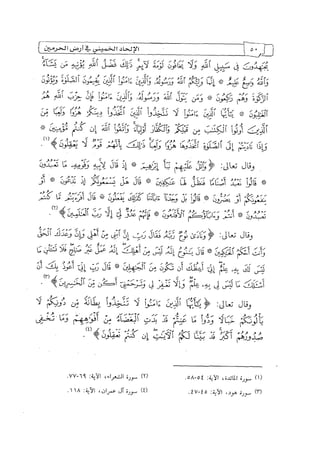 ٥٠ الإلحاد الخميني في أرض الحرمين
يُجَٰهِدُونَ فِى سَبِيلِ ٱللَّهِ وَلَا يَخَافُونَ لَوْمَةَ لَآئِمٍ ذَٰلِكَ فَضْلُ ٱللَّهِ يُؤْتِيهِ مَن يَشَآءُ
وَٱللَّهُ وَٰسِعٌ عَلِيمٌ * إِنَّمَا وَلِيُّكُمُ ٱللَّهُ وَرَسُولُهُۥ وَٱلَّذِينَ ءَامَنُوا۟ ٱلَّذِينَ يُقِيمُونَ ٱلصَّلَوٰةَ وَيُؤْتُونَ
ٱلزَّكَوٰةَ وَهُمْ رَٰكِعُونَ * وَمَن يَتَوَلَّ ٱللَّهَ وَرَسُولَهُۥ وَٱلَّذِينَ ءَامَنُوا۟ فَإِنَّ حِزْبَ ٱللَّهِ هُمُ
ٱلْغَٰلِبُونَ * يَٰٓأَيُّهَا ٱلَّذِينَ ءَامَنُوا۟ لَا تَتَّخِذُوا۟ ٱلَّذِينَ ٱتَّخَذُوا۟ دِينَكُمْ هُزُوًا وَلَعِبًا مِّنَ
ٱلَّذِينَ أُوتُوا۟ ٱلْكِتَٰبَ مِن قَبْلِكُمْ وَٱلْكُفَّارَ أَوْلِيَآءَ وَٱتَّقُوا۟ ٱللَّهَ إِن كُنتُم مُّؤْمِنِينَ *
وَإِذَا نَادَيْتُمْ إِلَى ٱلصَّلَوٰةِ ٱتَّخَذُوهَا هُزُوًا وَلَعِبًا ذَٰلِكَ بِأَنَّهُمْ قَوْمٌ لَّا يَعْقِلُونَ ﴾(١).
وقال تعالى: ﴿ وَٱتْلُ عَلَيْهِمْ نَبَأَ إِبْرَٰهِيمَ * إِذْ قَالَ لِأَبِيهِ وَقَوْمِهِۦ مَا تَعْبُدُونَ
* قَالُوا۟ نَعْبُدُ أَصْنَامًا فَنَظَلُّ لَهَا عَٰكِفِينَ * قَالَ هَلْ يَسْمَعُونَكُمْ إِذْ تَدْعُونَ * أَوْ
يَنفَعُونَكُمْ أَوْ يَضُرُّونَ * قَالُوا۟ بَلْ وَجَدْنَآ ءَابَآءَنَا كَذَٰلِكَ يَفْعَلُونَ * قَالَ أَفَرَءَيْتُم مَّا كُنتُمْ
تَعْبُدُونَ * أَنتُمْ وَءَابَآؤُكُمُ ٱلْأَقْدَمُونَ * فَإِنَّهُمْ عَدُوٌّ لِّىٓ إِلَّا رَبَّ ٱلْعَٰلَمِينَ ﴾(٢).
وقال تعالى: ﴿ وَنَادَىٰ نُوحٌ رَّبَّهُۥ فَقَالَ رَبِّ إِنَّ ٱبْنِى مِنْ أَهْلِى وَإِنَّ وَعْدَكَ ٱلْحَقُّ
وَأَنتَ أَحْكَمُ ٱلْحَٰكِمِينَ * قَالَ يَٰنُوحُ إِنَّهُۥ لَيْسَ مِنْ أَهْلِكَ إِنَّهُۥ عَمَلٌ غَيْرُ صَٰلِحٍ فَلَا تَسْـَٔلْنِ مَا
لَيْسَ لَكَ بِهِۦ عِلْمٌ إِنِّىٓ أَعِظُكَ أَن تَكُونَ مِنَ ٱلْجَٰهِلِينَ * قَالَ رَبِّ إِنِّىٓ أَعُوذُ بِكَ أَنْ
أَسْـَٔلَكَ مَا لَيْسَ لِى بِهِۦ عِلْمٌ وَإِلَّا تَغْفِرْ لِى وَتَرْحَمْنِىٓ أَكُن مِّنَ ٱلْخَٰسِرِينَ ﴾(٣).
وقال تعالى: ﴿ يَٰٓأَيُّهَا ٱلَّذِينَ ءَامَنُوا۟ لَا تَتَّخِذُوا۟ بِطَانَةً مِّن دُونِكُمْ لَا
يَأْلُونَكُمْ خَبَالًا وَدُّوا۟ مَا عَنِتُّمْ قَدْ بَدَتِ ٱلْبَغْضَآءُ مِنْ أَفْوَٰهِهِمْ وَمَا تُخْفِى
صُدُورُهُمْ أَكْبَرُ قَدْ بَيَّنَّا لَكُمُ ٱلْءَايَٰتِ إِن كُنتُمْ تَعْقِلُونَ ﴾(٤).
(١) سورة المائدة، الآية: ٥٤-٥٨. (٢) سورة الشعراء، الآية: ٦٩-٧٧.
(٣) سورة هود، الآية: ٤٥-٤٧. (٤) سورة آل عمران، الآية: ١١٨.